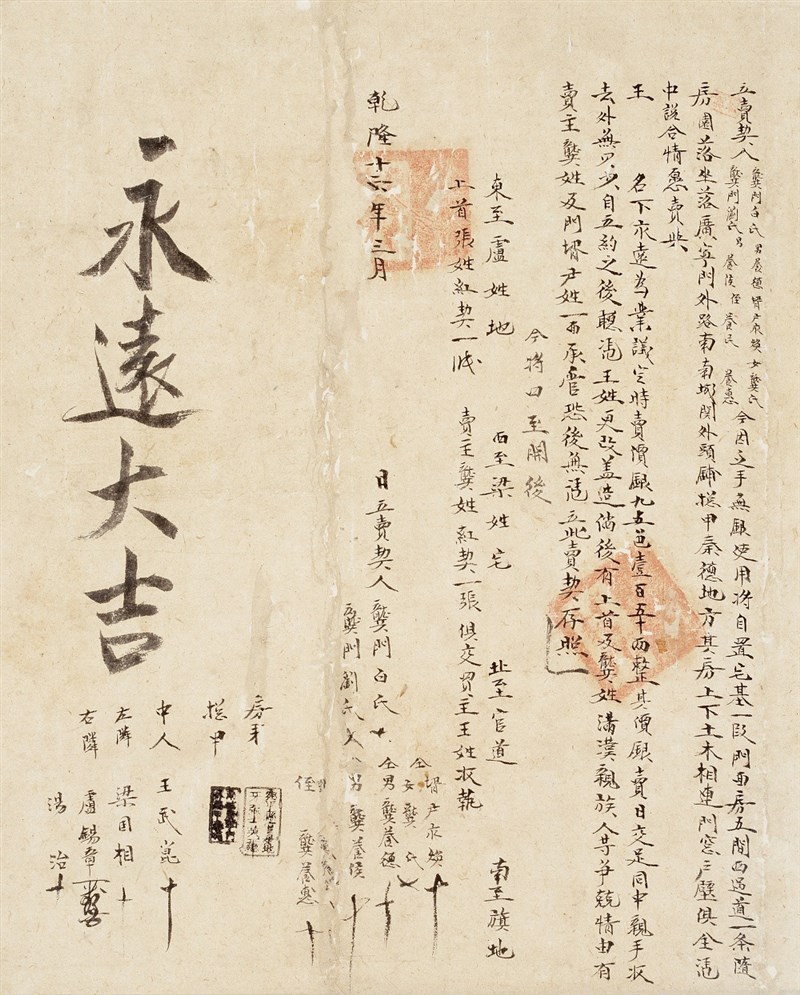 立賣契人
龔門白氏 男養德 婿尹永煥 女龔氏
龔門劉氏 男養侯 侄養民 養惠
今因乏手無銀使用將自置宅基一段門面房五間西過道一条隨
房園落坐落廣寧門外路南南城関外頭鋪摠甲秦德地方其房上下土木相連門窓戶壁俱全憑
中說合情愿賣與
王 名下永遠為業議定時賣價銀九五色壹百五十両整其價銀賣日交足同中親手收
去外無欠少自立約之後聽憑王姓更改蓋造倘後有上首及龔姓滿漢親族人等爭競情由有
賣主龔姓及門婿尹姓一面承管恐後無憑立此賣契存照
今將四至開後
東至盧姓地 西至梁姓宅 北至官道 南至旗地
上首張姓紅契一張 賣主龔姓紅契一張 俱交買主王姓收執
乾隆十六年三月 日立賣契人龔門白氏 十
龔門劉氏 十
仝婿尹永煥 十
仝女龔氏 十
仝男龔養德 十
男龔養侯 十
侄 龔養惠 十
房牙
摠甲
中人 王武崑 十
左隣 梁国相 十
右隣 盧錫章
湯治 十
永遠大吉